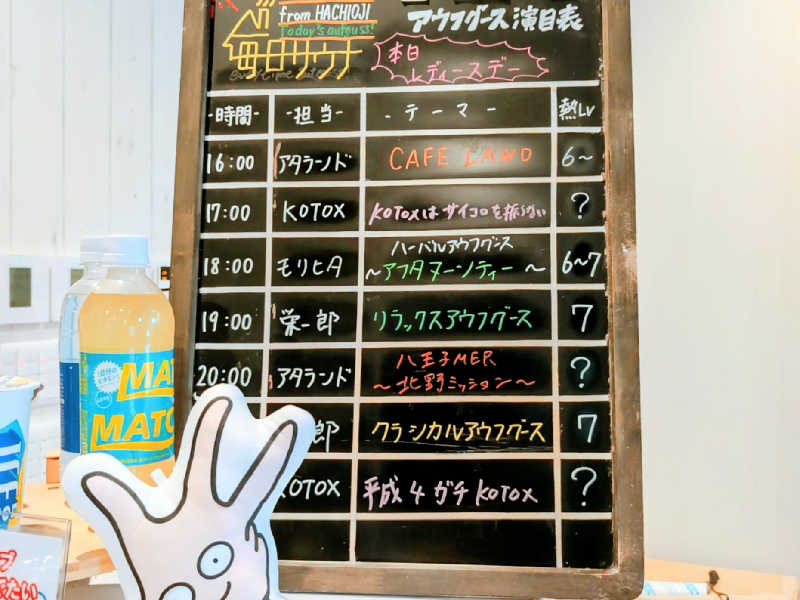 from HACHIOJI
today's aufguss!
毎日サウナ
アウフグース演目表
本日
レディースデー
-時間- -担当- -テーマ- 熱Lv
16:00 アタラハド CAFE LAND 6~
17:00 KOTOX KOTOXはサイコロを振らない ?
18:00 モリヒタ ハーバルアウフグース
~アフタヌーンティー~ 6~7
19:00 栄一郎 リラックスアウフグース 7
20:00 アタランド 八王子MER
~北野ミッション~ ?
郎 クラシカルアウフグース 7
KOTOX 平成4ガチKOTOX ?
MATC
MATC